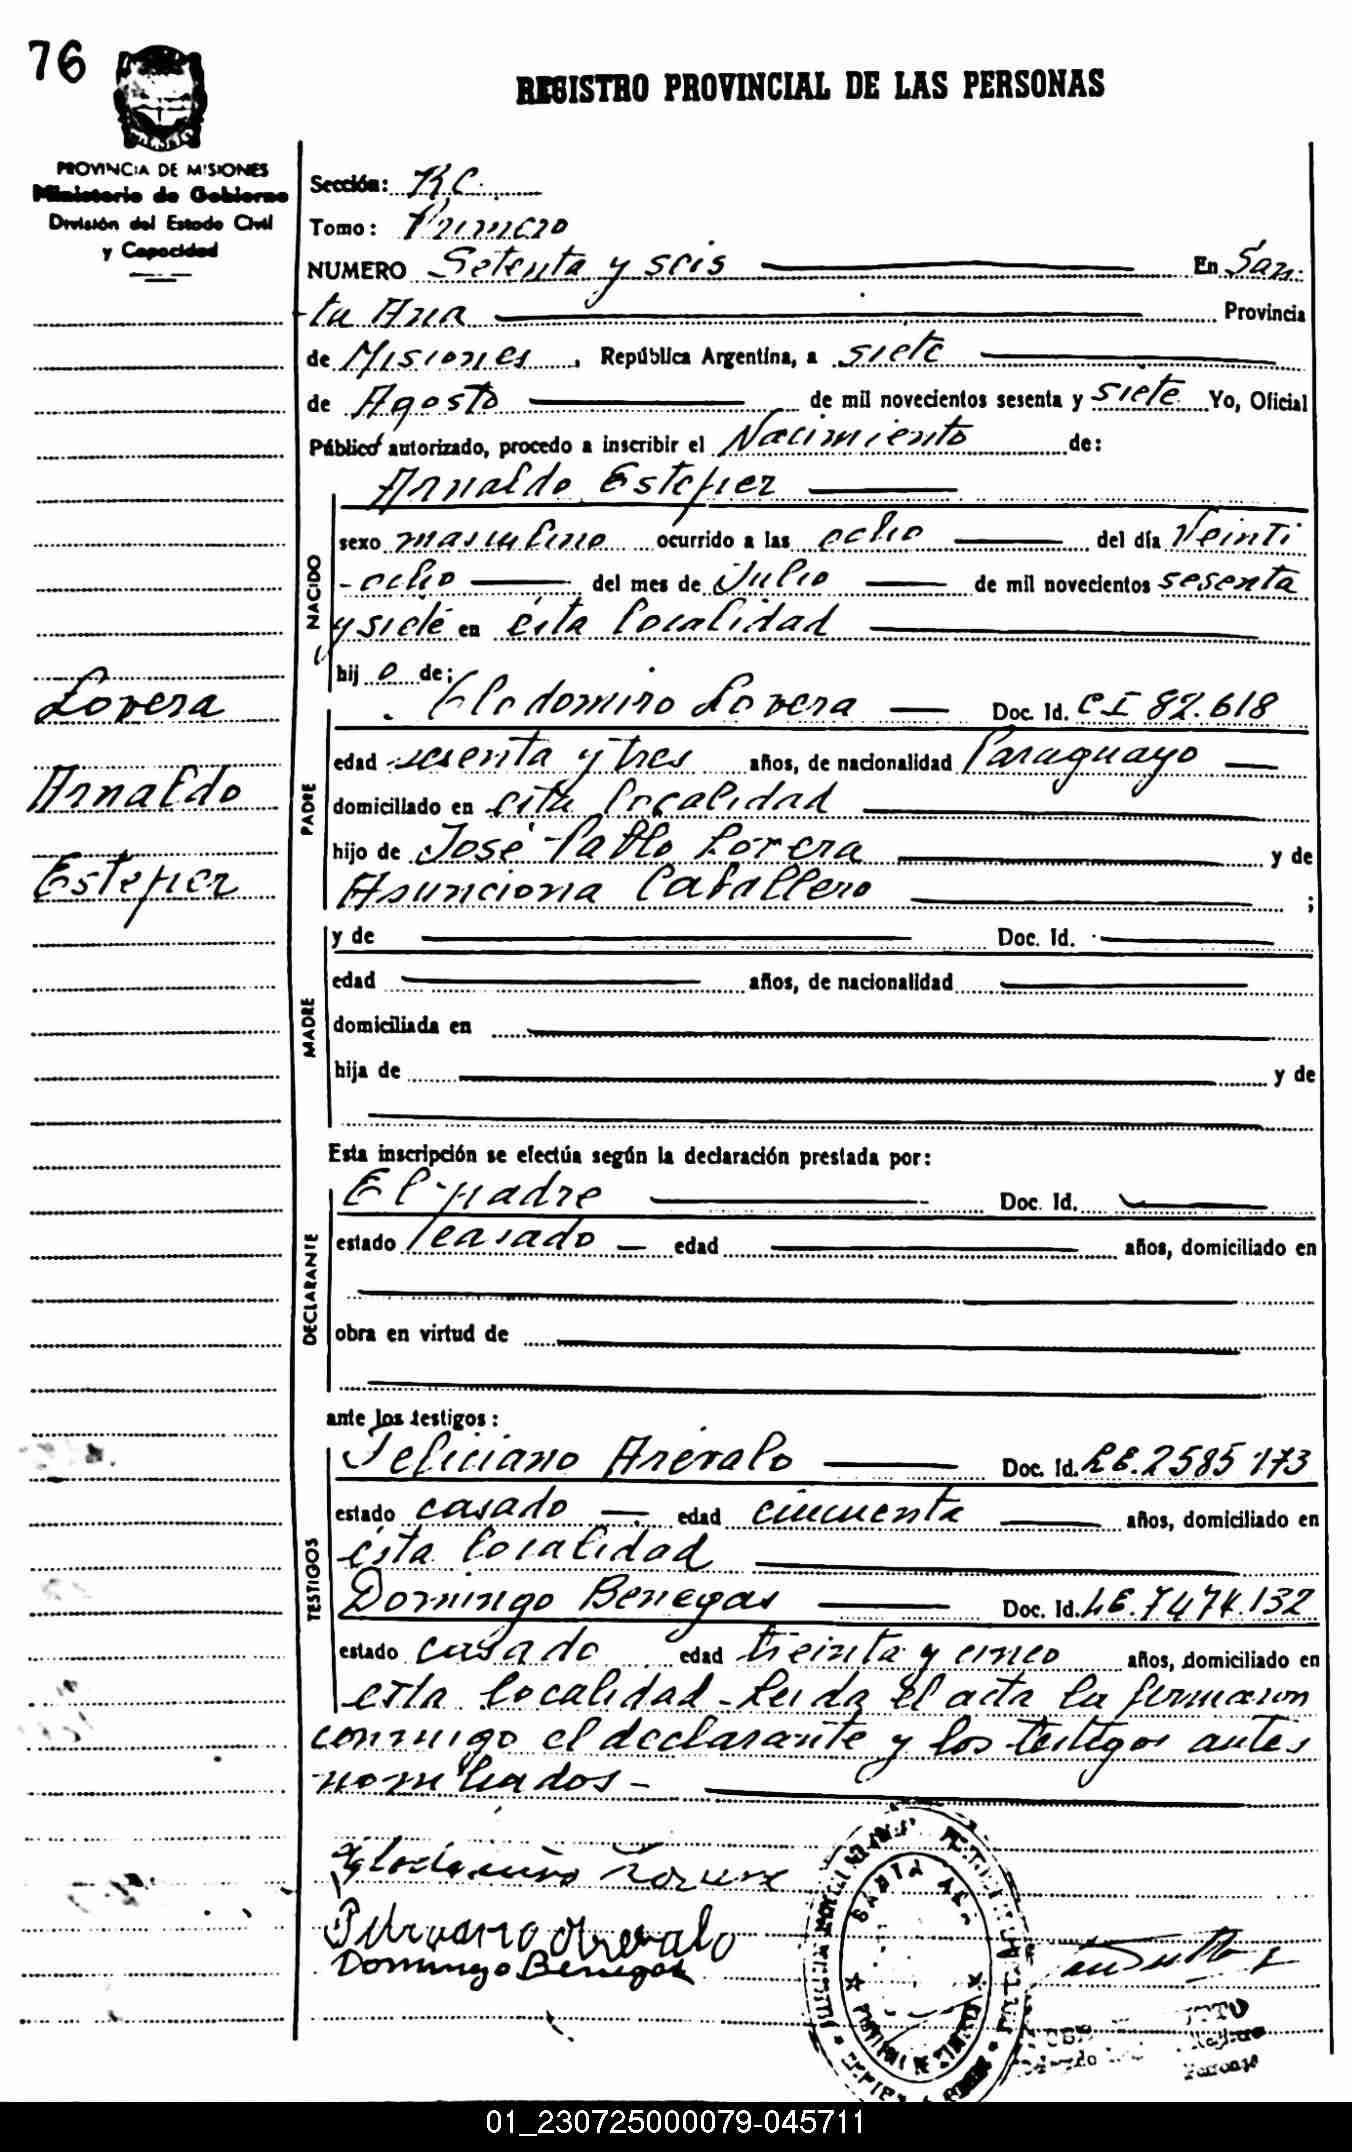 76
REGISTRO PROVINCIAL DE LAS PERSONAS
PROVINCIA DE MISIONES
Ministerio de Gobierno
División del Estado Civil
y Capacidad
Sección: R C.
Tomo: Primero
NUMERO Setenta y seis En San-
ta Ana Provincia
de Misiones, República Argentina, a siete
de Agosto de mil novecientos sesenta y siete Yo, Oficial
Público autorizado, procedo a inscribir el Nacimiento de:
Arnaldo Estefier
NACIDO
sexo masculino ocurrido a las ocho del día Veinti
-ocho del mes de Julio de mil novecientos sesenta
y siete en ésta localidad
hij o de:
Lovera
Arnaldo
Estefier
PADRE
Clodomiro Lovera Doc. Id. CI 82.618
edad sesenta y tres años, de nacionalidad Paraguayo
domiciliado en ésta localidad
hijo de José Pablo Lovera y de
Asunciona Caballero ;
MADRE
y de Doc. Id.
edad años, de nacionalidad
domiciliada en
hija de y de
Esta inscripción se efectúa según la declaración prestada por:
DECLARANTE
El padre Doc. Id.
estado casado edad años, domiciliado en
obra en virtud de
ante los testigos:
TESTIGOS
Feliciano Arévalo Doc. Id. LE.2585173
estado casado edad cincuenta años, domiciliado en
ésta localidad
Domingo Benegas Doc. Id. LE.7474.132
estado casado edad treinta y cinco años, domiciliado en
esta localidad - Leida el acta la firmaron
conmigo el declarante y los testigos antes
nombrados -
Arevalo
Domingo Benegas
SANTA ANA
PROVINCIA DE MISIONES
01_230725000079-045711